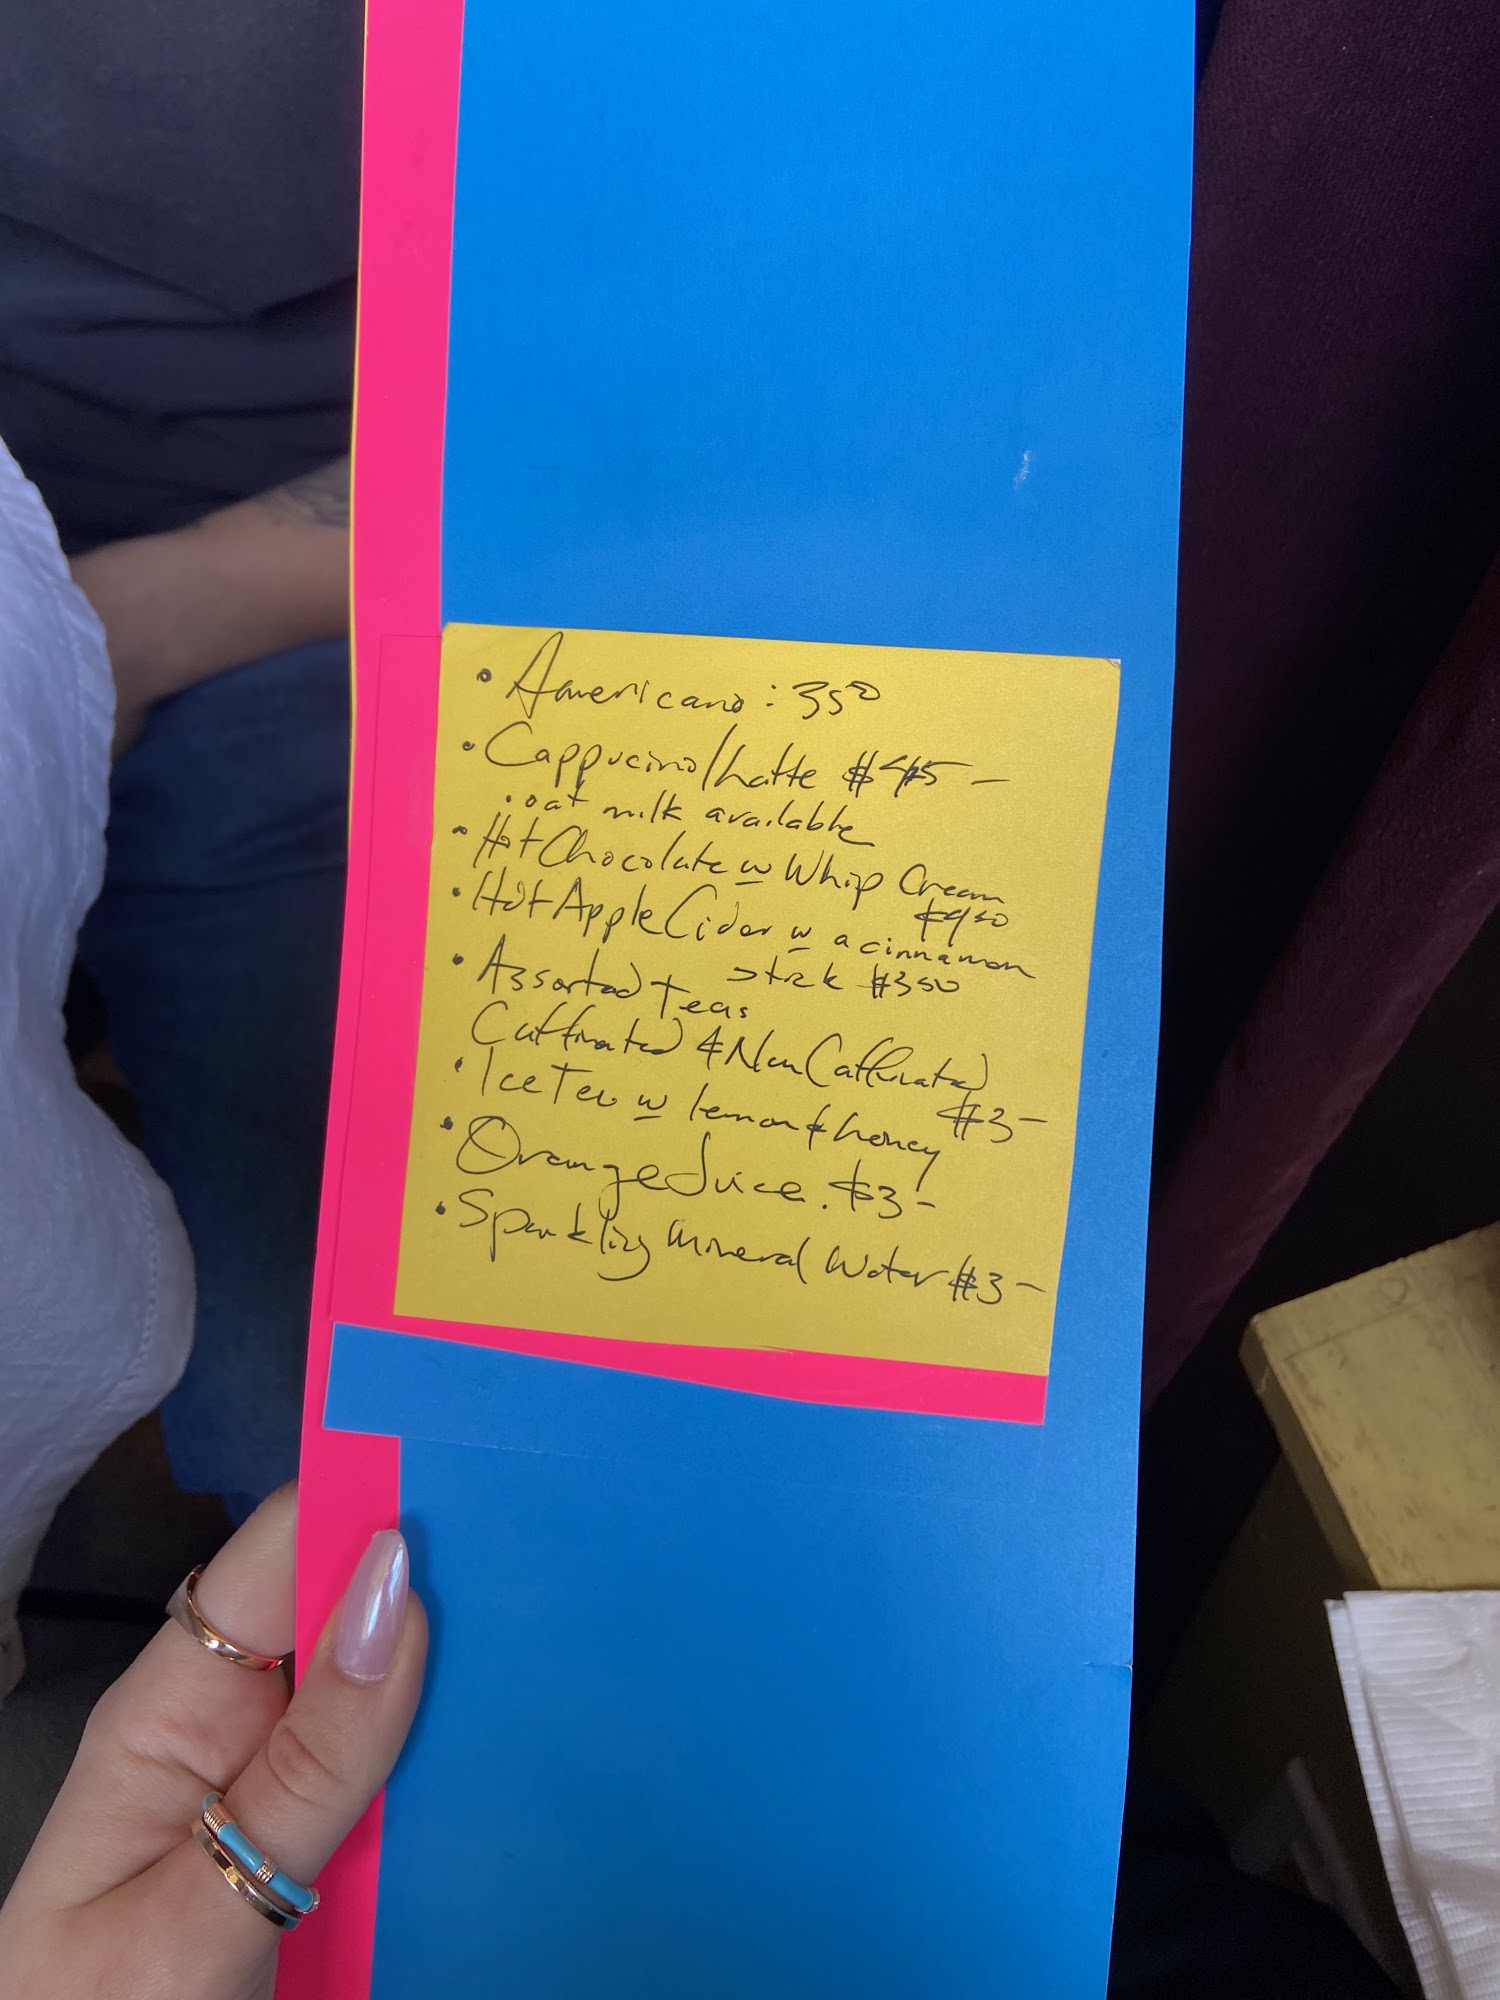 • Americano: 350
• Cappucino/Latte $5 –
• oat milk available
• Hot Chocolate w Whip Cream
$450
• Hot Apple Cider w a cinnamon
stick $350
• Assorted teas
Caffinated & Non Caffinated
$3 –
• Ice Tea w lemon & honey
• Orange Juice. $3 –
• Sparkling Mineral Water $3 –